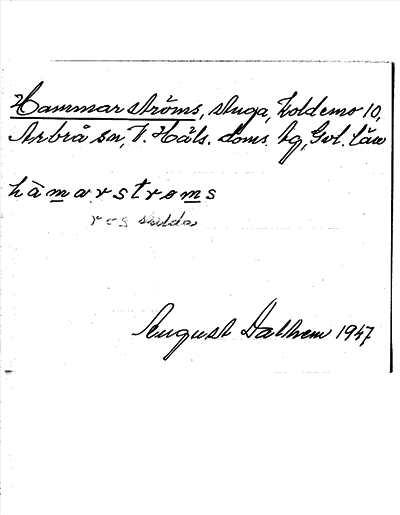 Hammarströms, stuga, Koldemo 10,
Arbrå sn, V. Häls. doms. tg, Gvl. län
hàmarstroms
r o s skilda
August Dalhem 1947